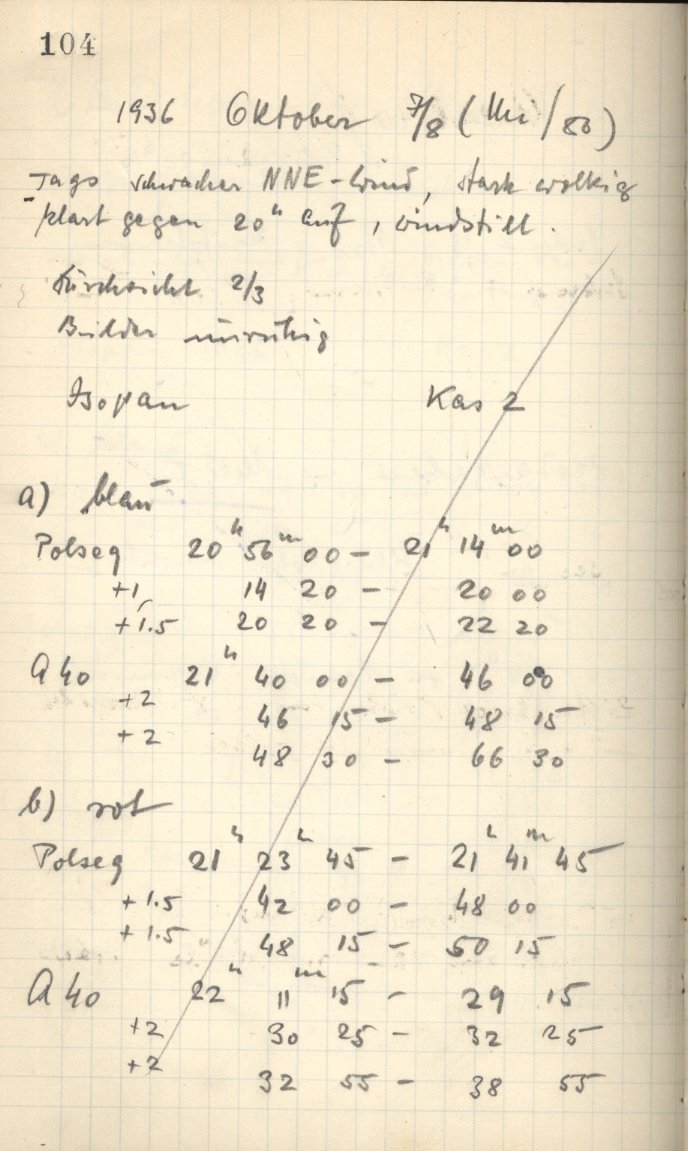 104
1936 Oktober 7/8 (Uhr /80)
Tags schwacher NNE-Wind, stark wolkig
klart gegen 20h auf, windstill.
Durchsicht 2/3
Bilder unruhig
Isopan Kas 2
a) blau
Polseq 20h 56m 00 – 21h 14m 00
+1 14 20 – 20 00
+1.5 20 20 – 22 20
A 40 21h 40 00 – 46 00
+2
46 15 – 48 15
+2
48 30 – 66 30
b) rot
Polseq 21h 23h 45 – 21h 41m 45
+1.5 42 00 – 48 00
+1.5
48 15 – 50 15
A 40 22h 11m 15 – 29 15
+2 30 25 – 32 25
+2
32 55 – 38 55